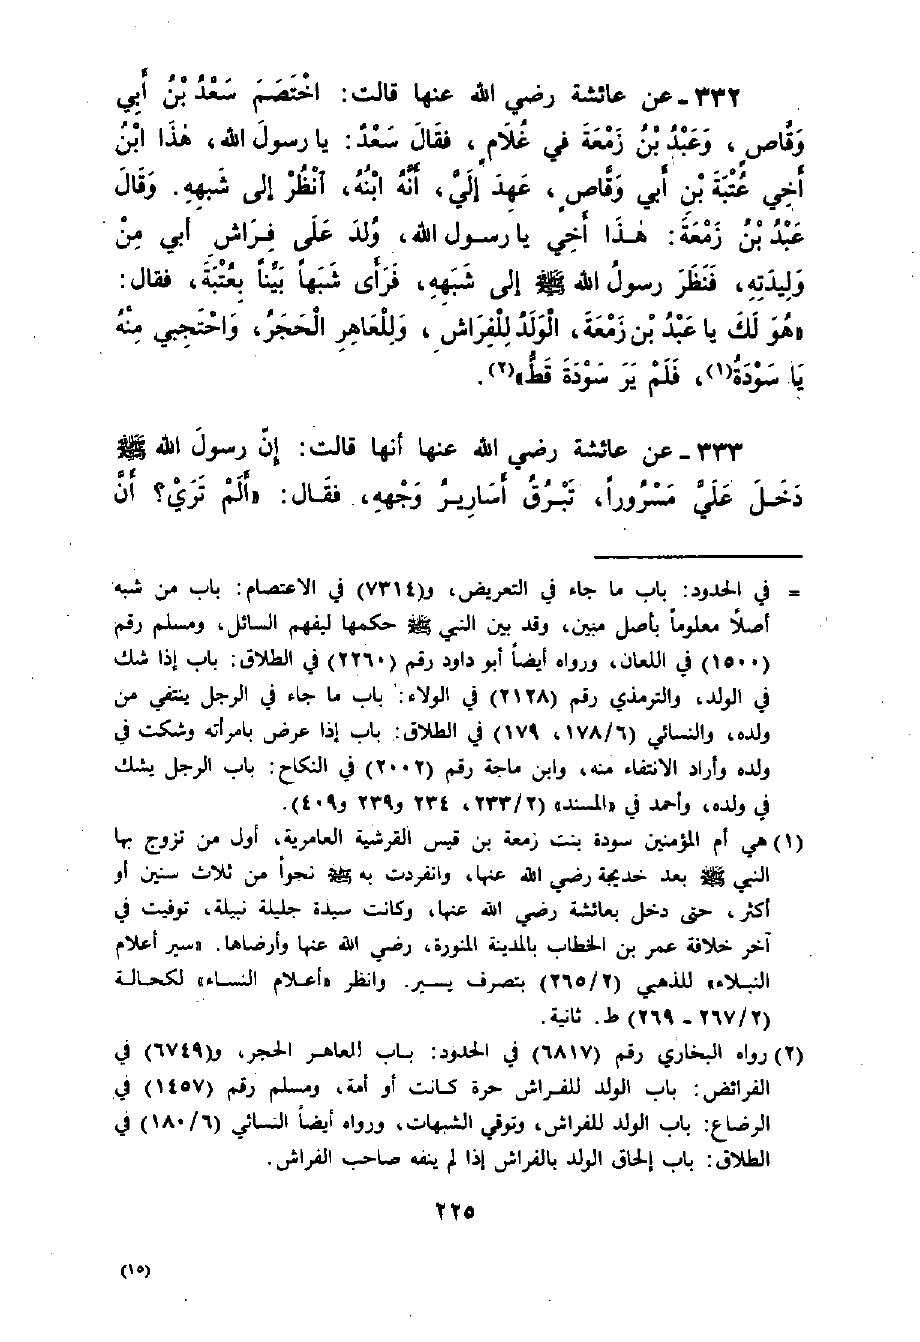 ٣٣٢ ـ عن عائشة رضي الله عنها قالت: اخْتَصَمَ سَعْدُ بْنُ أَبِي
وَقَّاصٍ، وَعَبْدُ بْنُ زَمْعَةَ في غُلَامٍ، فقَالَ سَعْدٌ: يا رسولَ الله، هٰذا ابْنُ
أَخِي عُتْبَةَ بْنِ أبي وَقَّاصٍ، عَهِدَ إِلَيَّ، أَنَّهُ ابْنُهُ، ٱنْظُرْ إلى شَبهِهِ. وَقَالَ
عَبْدُ بْنُ زَمْعَةَ: هٰذَا أَخِي يا رسول الله، وُلِدَ عَلَى فِرَاشِ أبي مِنْ
وَلِيدَتِهِ، فَنَظَرَ رسولُ الله ﷺ إلى شَبَهِهِ، فَرَأَى شَبَهاً بَيِّناً بِعُتْبَةَ، فقال:
«هُوَ لَكَ يا عَبْدُ بْن زَمْعَةَ، الْوَلَدُ لِلْفِرَاشِ، وَلِلْعَاهِرِ الْحَجَرُ، وَاحْتَجِبي مِنْهُ
يَا سَوْدَةُ(١)، فَلَمْ يَرَ سَوْدَةَ قَطُّ»(٢).
٣٣٣ ـ عن عائشة رضي الله عنها أنها قالت: إِنّ رسولَ الله ﷺ
دَخَلَ عَلَيَّ مَسْرُوراً، تَبْرُقُ أَسَارِيرُ وَجْهِهِ، فقَال: «أَلَمْ تَرَيْ؟ أَنَّ
= في الحدود: باب ما جاء في التعريض، و(٧٣١٤) في الاعتصام: باب من شبه
أصلاً معلوماً بأصل مبين، وقد بين النبي ﷺ حكمها ليفهم السائل، ومسلم رقم
(١٥٠٠) في اللعان، ورواه أيضاً أبو داود رقم (٢٢٦٠) في الطلاق: باب إذا شك
في الولد، والترمذي رقم (٢١٢٨) في الولاء: باب ما جاء في الرجل ينتفي من
ولده، والنسائي (١٧٨/٦، ١٧٩) في الطلاق: باب إذا عرض بامرأته وشكت في
ولده وأراد الانتفاء منه، وابن ماجة رقم (٢٠٠٢) في النكاح: باب الرجل يشك
في ولده، وأحمد في «المسند» (٢٣٣/٢، ٢٣٤ و٢٣٩ و٤٠٩).
(١) هي أم المؤمنين سودة بنت زمعة بن قيس القرشية العامرية، أول من تزوج بها
النبي ﷺ بعد خديجة رضي الله عنها، وانفردت به ﷺ نحواً من ثلاث سنين أو
أكثر، حتى دخل بعائشة رضي الله عنها، وكانت سيدة جليلة نبيلة، توفيت في
آخر خلافة عمر بن الخطاب بالمدينة المنورة، رضي الله عنها وأرضاها. «سير أعلام
النبلاء» للذهبي (٢٦٥/٢) بتصرف يسير. وانظر «أعلام النساء» لكحالة
(٢٦٧/٢ ـ ٢٦٩) ط. ثانية.
(٢) رواه البخاري رقم (٦٨١٧) في الحدود: باب للعاهر الحجر، و(٦٧٤٩) في
الفرائض: باب الولد للفراش حرة كانت أو أمة، ومسلم رقم (١٤٥٧) في
الرضاع: باب الولد للفراش، وتوقي الشبهات، ورواه أيضاً النسائي (١٨٠/٦) في
الطلاق: باب إلحاق الولد بالفراش إذا لم ينفه صاحب الفراش.
٢٢٥
(١٥)